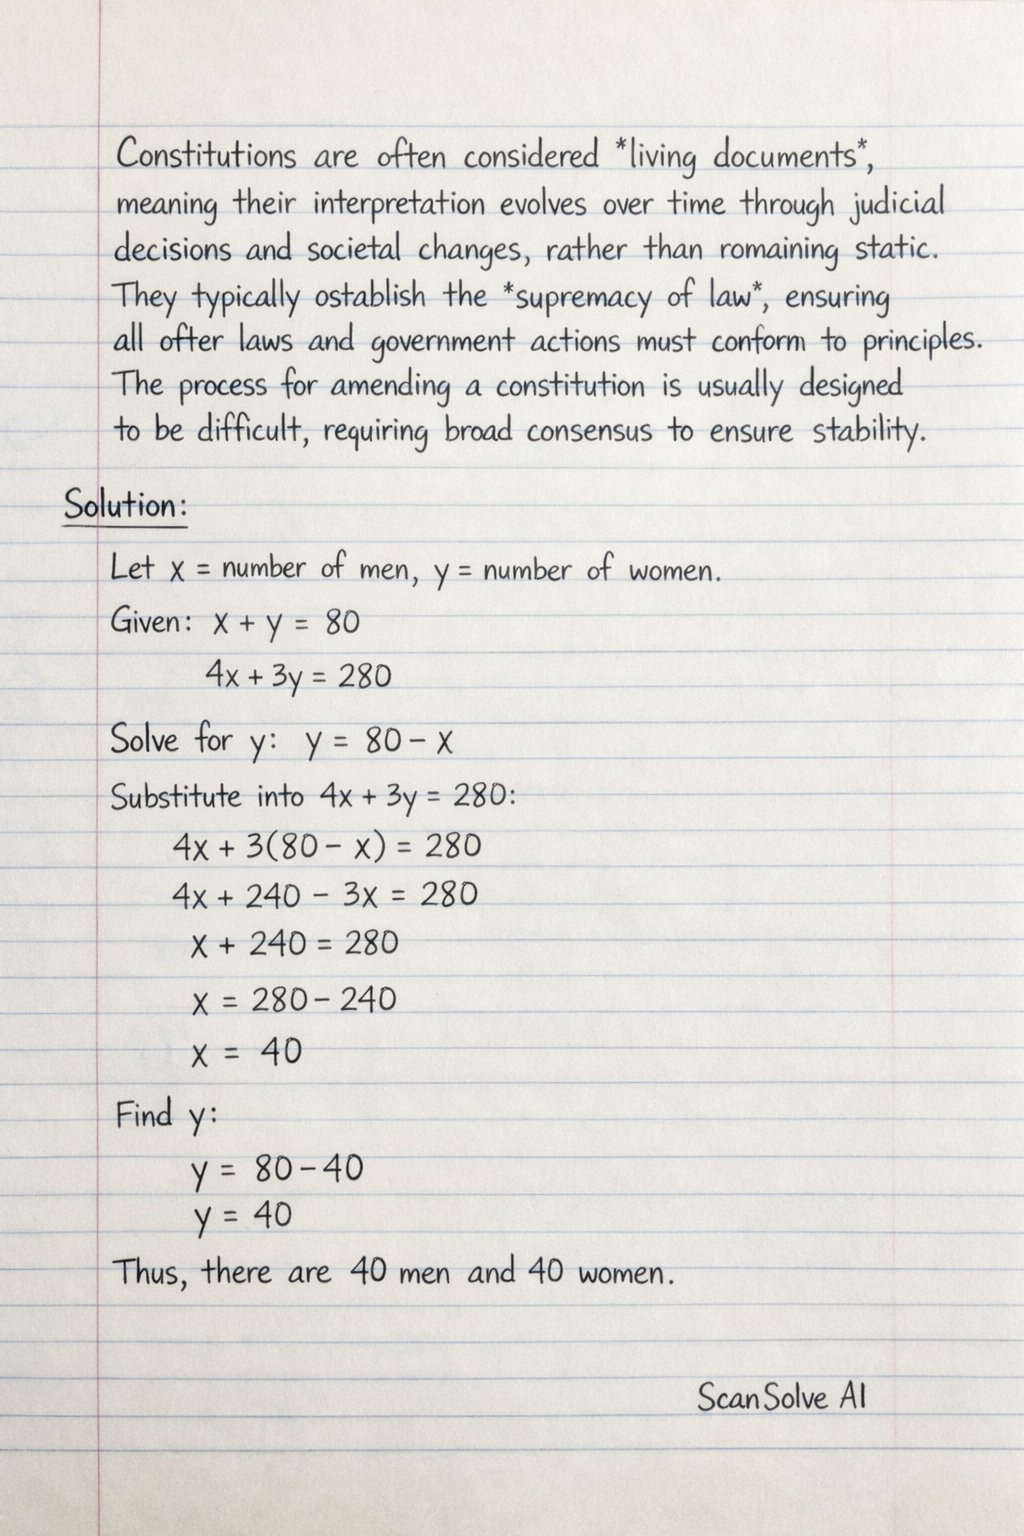 Constitutions are often considered *living documents*,
meaning their interpretation evolves over time through judicial
decisions and societal changes, rather than romaining static.
They typically ostablish the *supremacy of law*, ensuring
all ofter laws and government actions must conform to principles.
The process for amending a constitution is usually designed
to be difficult, requiring broad consensus to ensure stability.
Solution:
Let x = number of men, y = number of women.
Given: x + y = 80
4x + 3y = 280
Solve for y: y = 80 - x
Substitute into 4x + 3y = 280:
4x + 3(80 - x) = 280
4x + 240 - 3x = 280
x + 240 = 280
x = 280 - 240
x = 40
Find y:
y = 80 - 40
y = 40
Thus, there are 40 men and 40 women.
ScanSolve AI